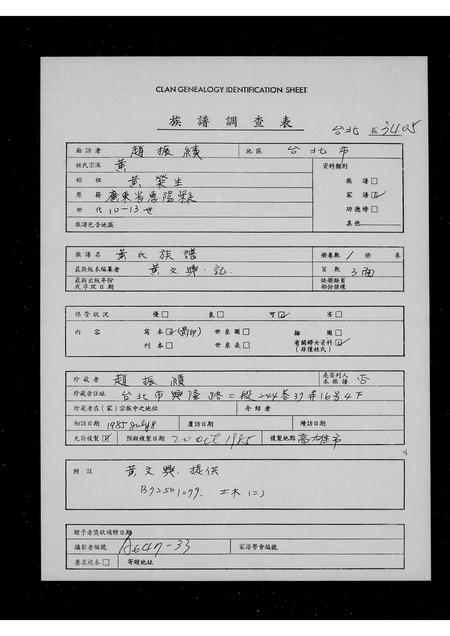 CLAN GENEALOGY IDENTIFICATION SHEET
族譜調查表
台北 3405
面訪者 趙振績 地區 台北市
姓氏宗派 黃 資料類別
始祖 黃榮生 族譜□
原籍 廣東省惠陽縣 家譜☑
世代 10-13世 功德榜□
族譜包含地區 其他
族譜名 黃氏族譜 冊卷數 1 冊 卷
最新版本編纂者 黃文興.記 頁數 3面
最新出版年份或序跋日期 缺冊缺頁部份描樓
保管狀況 優□ 良□ 可☑ 劣□
內容 寫本☑(影印) 世系圖□ 插圖□
刊本□ 世系表□ 有關婦女資料☑(非僅姓氏)
珍藏者 趙振績 是否列入本族譜 否
珍藏者住址 台北市興隆路二段244巷37弄16号4F
珍藏者在(家)宗族中之地位 介紹者
初訪日期 1985 July 8 覆訪日期 續訪日期
允許複製☑ 預擬複製日期 20 Oct 1985 複製地點 高雄市
附註 黃文興.提供
B72501079. 土木(二)
贈予者獎狀頒贈日期
攝影者編號 A647-33 家譜學會編號
要求複本□ 寄贈地址